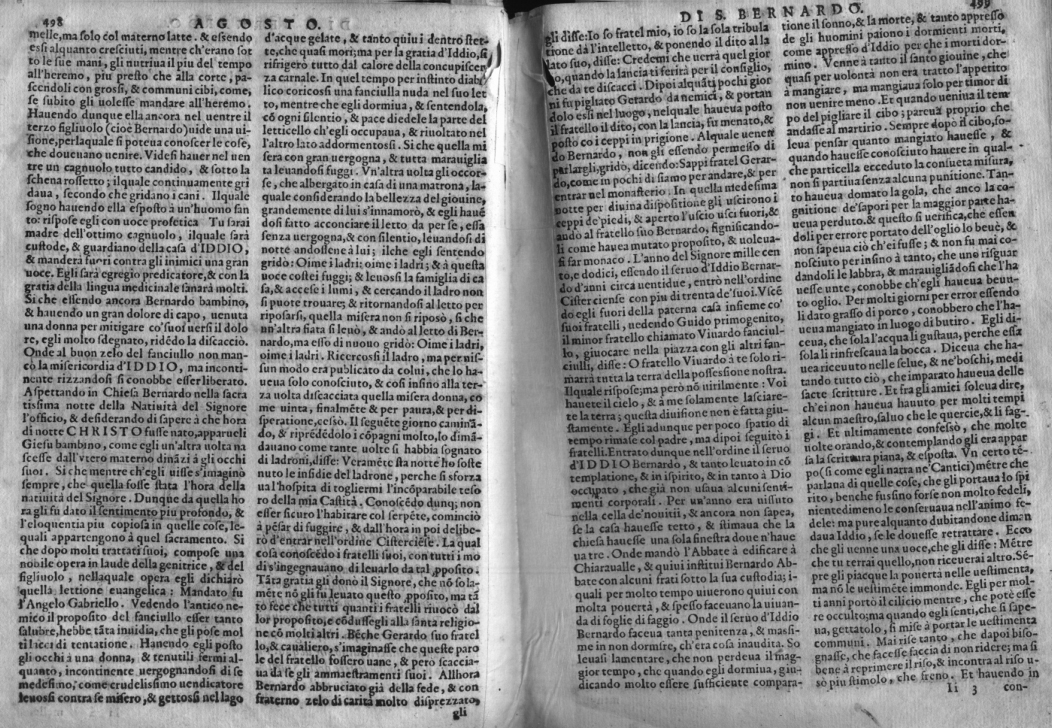 498
AGOSTO.
melle, ma solo col materno latte. & essendo
essi alquanto cresciuti, mentre ch'erano sot
to le sue mani, gli nutriua il piu del tempo
all'heremo, piu presto che alla corte, pa-
scendoli con grossi, & communi cibi, come,
se subito gli uolesse mandare all'heremo.
Hauendo dunque ella ancora nel uentre il
terzo figliuolo (cioè Bernardo) uide una ui-
sione, perlaquale si poteua conoscer le cose,
che doueuano uenire. Videsi hauer nel uen
tre un cagnuolo tutto candido, & sotto la
schena rossetto; ilquale continuamente gri
daua, secondo che gridano i cani. Ilquale
sogno hauendo ella esposto à un'huomo san
to: rispose egli con uoce profetica Tu sarai
madre dell'ottimo cagnuolo, ilquale sarà
custode, & guardiano della casa d'IDDIO,
& manderà fuori contra gli inimici una gran
uoce. Egli sarà egregio predicatore, & con la
gratia della lingua medicinale sanarà molti.
Si che essendo ancora Bernardo bambino,
& hauendo un gran dolore di capo, uenuta
una donna per mitigare co'suoi uersi il dolo
re, egli molto sdegnato, ridẽdo la discacciò.
Onde al buon zelo del fanciullo non man-
cò la misericordia d'IDDIO, ma inconti-
nente rizzandosi si conobbe esser liberato.
Aspettando in Chiesa Bernardo nella sacra
tissima notte della Natiuità del Signore
l'officio, & desiderando di sapere à che hora
di notte CHRISTO fusse nato, apparueli
Giesu bambino, come egli un'altra uolta na
scesse dall'vtero materno dinãzi à gli occhi
suoi. Si che mentre ch'egli uisse s'imaginò
sempre, che quella fosse stata l'hora della
natiuità del Signore. Dunque da quella ho
ra gli fu dato il sentimento piu profondo, &
l'eloquentia piu copiosa in quelle cose, le-
quali appartengono à quel sacramento. Si
che dopo molti trattati suoi, compose una
nobile opera in laude della genitrice, & del
figliuolo, nellaquale opera egli dichiarò
quella lettione euangelica: Mandato fu
l'Angelo Gabriello. Vedendo l'antico ne-
mico il proposito del fanciullo esser tanto
salubre, hebbe tãta inuidia, che gli pose mol
ti lacci di tentatione. Hauendo egli posto
gli occhi à una donna, & tenutili fermi al-
quanto, incontinente uergognandosi di se
medesimo, come crudelissimo uendicatore
leuossi contra se misero, & gettossi nel lago
d'acque gelate, & tanto quiui dentro stet-
te, che quasi mori; ma per la gratia d'Iddio, si
rifrigerò tutto dal calore della concupiscen
za carnale. In quel tempo per instinto diabo
lico coricossi una fanciulla nuda nel suo let
to, mentre che egli dormiua, & sentendola,
cõ ogni silentio, & pace diedele la parte del
letticello ch'egli occupaua, & riuoltato nel
l'altro lato addormentossi. Si che quella mi
sera con gran uergogna, & tutta marauiglia
ta leuandosi fuggì. Vn'altra uolta gli occor-
se, che albergato in casa di una matrona, la-
quale considerando la bellezza del giouine,
grandemente di lui s'innamorò, & egli hauẽ
dosi fatto acconciare il letto da per se, essa
senza uergogna, & con silentio, leuandosi di
notte andossene à lui; ilche egli sentendo
gridò: Oime i ladri; oime i ladri; & à questa
uoce costei fuggi; & leuosi la famiglia di ca
sa, & accese i lumi, & cercando il ladro non
si puote trouare; & ritornandosi al letto per
riposarsi, quella misera non si riposò, sì che
un'altra fiata si leuò, & andò al letto di Ber-
nardo, ma esso di nuouo gridò: Oime i ladri,
oime i ladri. Ricercossi il ladro, ma per nis-
sun modo era publicato da colui, che lo ha-
ueua solo conosciuto, & così insino alla ter-
za uolta discacciata quella misera donna, co
me uinta, finalmẽte & per paura, & per di-
speratione, cessò. Il seguẽte giorno caminã
do, & riprẽdẽdolo i cõpagni molto, lo dimã
dauano come tante uolte si habbia sognato
di ladroni, disse: Veramẽte sta notte ho soste
nuto le insidie del ladrone, perche si sforza
ua l'hospita di togliermi l'incõparabile teso
ro della mia Castità. Conoscẽdo dunq; non
esser sicuro l'habitare col serpẽte, cominciò
à pẽsar di fuggire, & dall'hora in poi delibe-
rò d'entrar nell'ordine Cisterciẽse. La qual
cosa conoscẽdo i fratelli suoi, con tutti i mo
di s'ingegnauano di leuarlo da tal ꝓposito.
Tãta gratia gli donò il Signore, che nõ sola-
mẽte nõ gli fu leuato questo ꝓposito, ma tã
to fece che tutti quanti i fratelli riuocò dal
lor proposito, e cõdussegli alla santa religio-
ne cõ molti altri. Bẽche Gerardo suo fratel
lo, & caualiero, s'imaginasse che queste paro
le del fratello fossero uane, & però scaccia-
ua da se gli ammaestramenti suoi. Allhora
Bernardo abbruciato già della fede, & con
fraterno zelo di carità molto disprezzato,
gli
DI S. BERNARDO.
499
gli disse: Io so fratel mio, io so la sola tribula
tione dà l'intelletto, & ponendo il dito alla
lato suo, disse: Credemi che uerrà quel gior
no, quando la lancia ti ferirà per il consiglio,
che da te discacci. Dipoi alquãti pochi gior
ni fu pigliato Gerardo da nemici, & portan
dolo essi nel luogo, nelquale haueua posto
il fratello il dito, con la lancia, fu menato, &
posto co i ceppi in prigione. Alquale uenen
do Bernardo, non gli essendo permesso di
parlargli, gridò, dicendo: Sappi fratel Gerar-
do, come in pochi dì siamo per andare, & per
entrar nel monasterio. In quella medesima
notte per diuina dispositione gli uscirono i
ceppi de'piedi, & aperto l'uscio uscì fuori, &
andò al fratello suo Bernardo, significando-
li come hauea mutato proposito, & uoleua-
si far monaco. L'anno del Signore mille cen
to, e dodici, essendo il seruo d'Iddio Bernar-
do d'anni circa uentidue, entrò nell'ordine
Cisterciense con piu di trenta de'suoi. Vscẽ
do egli fuori della paterna casa insieme co'
suoi fratelli, uedendo Guido primogenito,
il minor fratello chiamato Viuardo fanciul-
lo, giuocare nella piazza con gli altri fan-
ciulli, disse: O fratello Viuardo à te solo ri-
marrà tutta la terra della possessione nostra.
Ilquale rispose, ma però nõ uirilmente: Voi
hauete il cielo, & à me solamente lasciare-
te la terra; questa diuisione non è fatta giu-
stamente. Egli adunque per poco spatio di
tempo rimase col padre, ma dipoi seguitò i
fratelli. Entrato dunque nell'ordine il seruo
d'IDDIO Bernardo, & tanto leuato in cõ
templatione, & in ispirito, & in tanto à Dio
occupato, che già non usaua alcuni senti-
menti corporali. Per un'anno era uissuto
nella cella de'nouitii, & ancora non sapea,
se la casa hauesse tetto, & stimaua che la
chiesa hauesse una sola finestra doue n'haue
ua tre. Onde mandò l'Abbate à edificare à
Chiaraualle, & quiui instituì Bernardo Ab-
bate con alcuni frati sotto la sua custodia; i-
quali per molto tempo uiuerono quiui con
molta pouertà, & spesso faceuano la uiuan-
da di foglie di faggio. Onde il seruo d'Iddio
Bernardo faceua tanta penitenza, & massi-
me in non dormire, ch'era cosa inaudita. So
leuasi lamentare, che non perdeua il mag-
gior tempo, che quando egli dormiua, giu-
dicando molto essere sufficiente compara-
tione il sonno, & la morte, & tanto appresso
de gli huomini paiono i dormienti morti,
come appresso d'Iddio per che i morti dor-
mino. Venne à tanto il santo giouine, che
quasi per uolontà non era tratto l'appetito
à mangiare, ma mangiaua solo per timor di
non uenire meno. Et quando ueniua il tem
po del pigliare il cibo; pareua proprio che
andasse al martirio. Sempre dopò il cibo, so-
leua pensar quanto mangiato hauesse, &
quando hauesse conosciuto hauere in qual-
che particella ecceduto la consueta misura,
non si partiua senza alcuna punitione. Tan-
to haueua domato la gola, che anco la co-
gnitione de'sapori per la maggior parte ha-
ueua perduto. & questo si uerifica, che essen
doli per errore portato dell'oglio lo beuè, &
non sapeua ciò ch'ei fusse; & non fu mai co-
nosciuto per insino à tanto, che uno risguar
dandoli le labbra, & marauigliãdosi che l'ha
uesse unte, conobbe ch'egli haueua beuu-
to oglio. Per molti giorni per error essendo
li dato grasso di porco, conobbero che l'ha-
ueua mangiato in luogo di butiro. Egli di-
ceua, che sola l'acqua li gustaua, perche essa
sola li rinfrescaua la bocca. Diceua che ha-
uea riceuuto nelle selue, & ne'boschi, medi
tando tutto ciò, che imparato haueua delle
sacte scritture. Et tra gli amici soleua dire,
ch'ei non haueua hauuto per molti tempi
alcun maestro, saluo che le quercie, & li fag-
gi. Et ultimamente confessò, che molte
uolte orando, & contemplando gli era appar
sa la scrittura piana, & esposta. Vn certo tẽ-
po (si come egli narra ne'Cantici) mẽtre che
parlaua di quelle cose, che gli portaua lo spi
rito, benche fussino forse non molto fedeli,
nientedimeno le conseruaua nell'animo fe-
dele: ma pure alquanto dubitandone diman
daua Iddio, se le douesse retrattare. Ecco
che gli uenne una uoce, che gli disse: Mẽtre
che tu terrai quello, non riceuerai altro. Sẽ-
pre gli piacque la pouertà nelle uestimenta,
ma nõ le uestimẽte immonde. Egli per mol-
ti anni portò il cilicio mentre, che potè esse
re occulto; ma quando egli sentì, che si sape-
ua, gettatolo, si mise à portar le uestimenta
communi. Mai rise tanto, che dapoi biso-
gnasse, che facesse faccia di non ridere; ma sì
bene à reprimere il riso, & incontra al riso u-
sò piu stimolo, che freno. Et hauendo in
Ii 3
con-